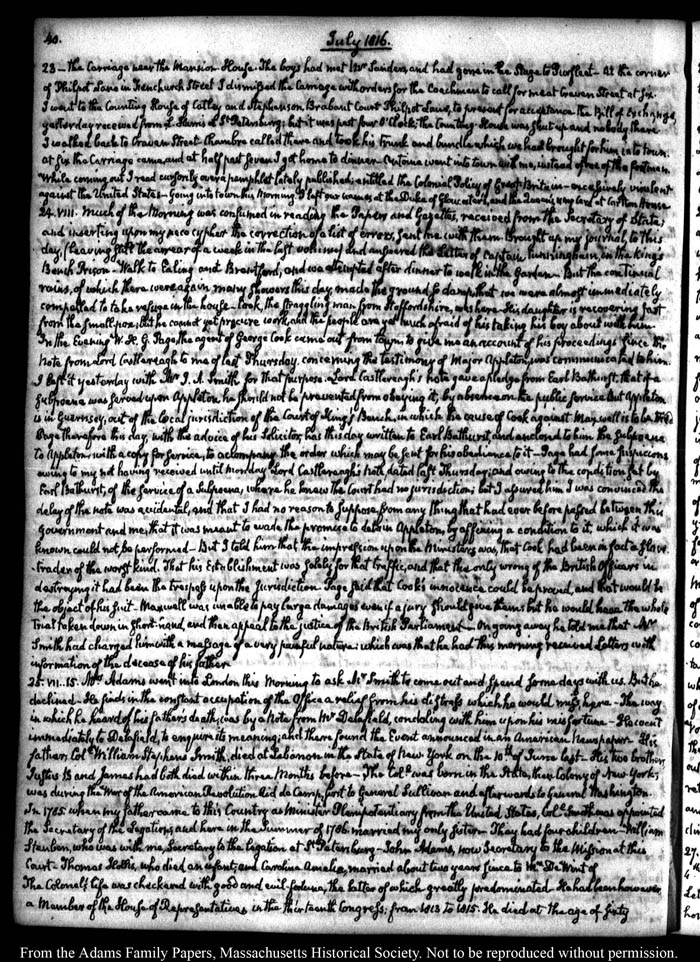 40.
July 1816.
23 – the Carriage near the Mansion House. The boys had met Mr Sanders, and had gone in the Stage to Purfleet – At the corner
of Philpot Lane in Fenchurch Street I dismissed the Carriage with orders for the Coachman to call for me at Craven Street at six.
I went to the Counting House of Catley and Stephenson, Brabant Court Philpot Lane, to present for acceptance the Bill of Exchange,
yesterday received from L. Harris of St Petersburg; but it was past four O'Clock; the Counting-House was shut up and nobody there
I walked back to Craven Street. Chambre called there and took his Trunk and bundle which we had brought for him into town.
at six the Carriage came, and at half past seven I got home to dinner. Antoine went into town with me, instead of one of the footmen.
While coming out I read cursorily over a pamphlet lately published, entitled the Colonial Policy of Great-Britain – excessively virulent
against the United States – Going into town this Morning I left our names at the Duke of Gloucester's, and the Queen's new Card at Carlton House.
24. VIII. Much of the Morning was consumed in reading the Papers and Gazettes, received from the Secretary of State,
and inserting upon my new cypher the correction of a list of errors, sent me with them. Brought up my Journal, to this
day, (leaving still the arrear of a week in the last volume) and answered the Letter of Captain Cunningham, in the King's
Bench Prison – Walk to Ealing and Brentford, and we attempted after dinner to walk in the Garden – But the continual
rains, of which there were again many showers this day, made the ground so damp, that we were almost immediately
compelled to take refuge in the house – Cook, the straggling man from Staffordshire, was here – His daughter is recovering fast
from the Small-pox; but he cannot yet procure work, and the people are yet much afraid of his taking his boy about with him.
In the Evening W. H. G. Page, the agent of George Cook came out from town to give me an account of his proceedings since the
note from Lord Castlereagh to me of last Thursday, concerning the testimony of Major Appleton, was communicated to him.
I left it yesterday with Mr J. A. Smith for that purpose. Lord Castlereagh's note gave a pledge from Earl Bathurst, that if a
Subpoena was served upon Appleton he should not be prevented from obeying it, by absence on the public service. But Appleton
is in Guernsey, out of the local jurisdiction of the Court of King's Bench, in which the cause of Cook against Maxwell is to be tried.
Page therefore this day, with the advice of his Solicitor, has this day written to Earl Bathurst, and enclosed to him the Subpoena
to Appleton with a copy for service, to accompany the order which may be sent for his obedience to it – Page had some suspicions
owing to my not having received until Monday Lord Castlereagh's Note, dated last Thursday; and owing to the condition set by
Earl Bathurst, of the service of a Subpoena, where he knew the Court had no jurisdiction; but I assured him I was convinced the
delay of the note was accidental, and that I had no reason to suppose from any thing that had ever before passed between this
Government and me, that it was meant to evade the promise to detain Appleton, by affixing a condition to it, which it was
known could not be performed – But I told him that the impression upon the Ministers was, that Cook had been in fact a Slave-
trader of the worst kind. That his Establishment was solely for that traffic, and that the only wrong of the British Officers in
destroying it had been the trespass upon the Jurisdiction. Page said that Cook's innocence could be proved, and that would be
the object of his suit. Maxwell was unable to pay large damages even if a jury should give them; but he would have the whole
Trial taken down in short-hand, and then appeal to the justice of the British Parliament – On going away he told me that Mr
Smith had charged him with a message of a very painful nature: which was that he had this morning received Letters with
information of the decease of his father.
25. VII. 15. Mrs Adams went into London this Morning to ask Mr Smith to come out and spend some days with us. But he
declined – He finds in the constant occupation of the Office a relief from his distress which he would miss here – The way
in which he heard of his father's death, was by a Note from Mr Delafield, condoling with him upon his misfortune – He went
immediately to Delafield, to enquire its meaning; and there found the Event announced in an American Newspaper – His
father, Coll William Stephens Smith, died at Lebanon in the State of New York on the 10th of June last – His two brothers
Justus B and James had both died within three Months before – The Coll was born in the State, then Colony of New York;
was during the War of the American Revolution Aid de Camp, first to General Sullivan and afterwards to General Washington.
In 1785 when my father came to this Country as Minister Plenipotentiary from the United States, Coll Smith was appointed
the Secretary of the Legation, and here in the Summer of 1786 married my only Sister – They had four children – William
Steuben, who was with me, Secretary to the legation at St Petersburg – John Adams, now Secretary to the Mission at this
Court – Thomas Hollis, who died an infant; and Caroline Amelia, married about two years since to Mr De Wint of
The Colonel's life was checkered with good and evil fortune, the latter of which greatly predominated. He had been however,
a Member of the House of Representatives in the thirteenth Congress; from 1813 to 1815. He died at the age of sixty
From the Adams Family Papers, Massachusetts Historical Society. Not to be reproduced without permission.